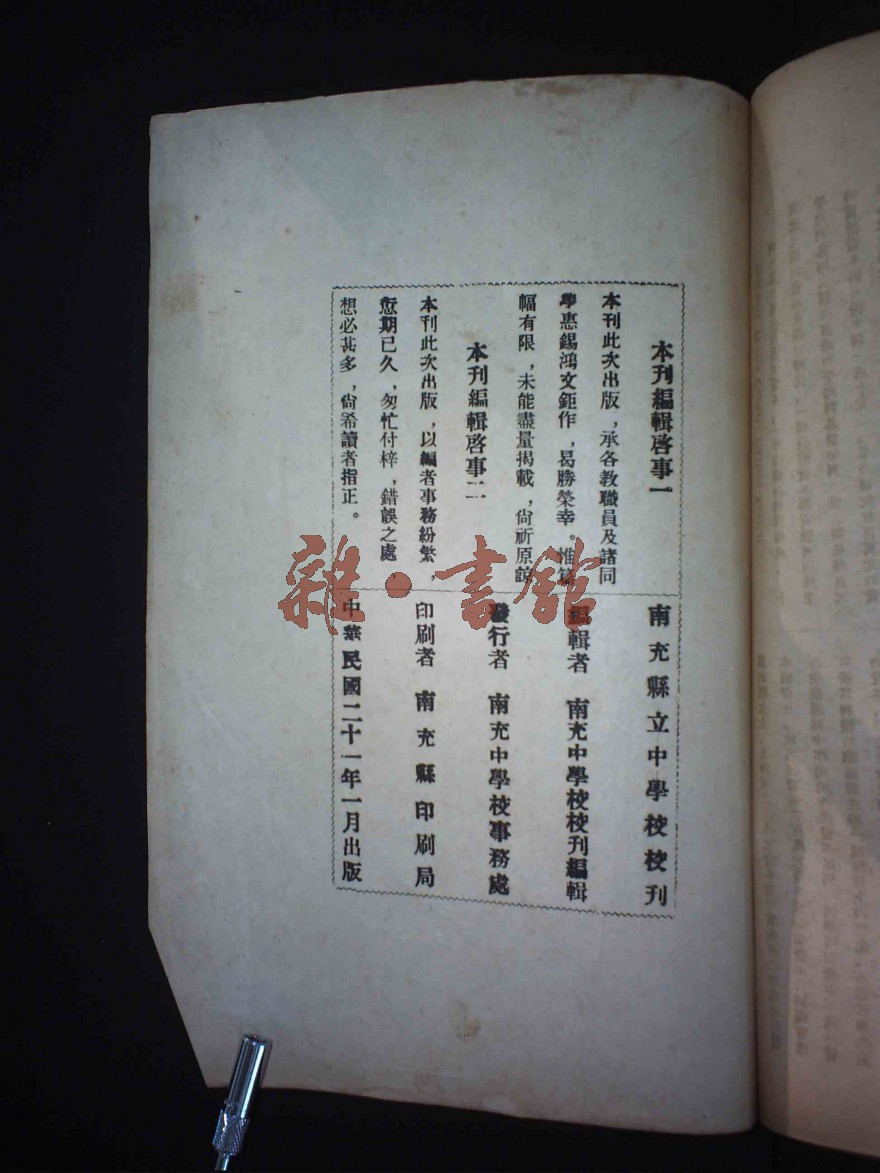 本刊編輯啓事一
本刊此次出版，承各教職員及諸同
學惠錫鴻文鉅作，曷勝榮幸。惟篇
幅有限，未能盡量揭載，尙祈原諒
本刊編輯啓事二
本刊此次出版，以編者事務紛繁，
愆期已久，匆忙付梓，錯誤之處，
想必甚多，尙希讀者指正。
南充縣立中學校校刊
編輯者 南充中學校校刊編輯
發行者 南充中學校事務處
印刷者 南充縣印刷局
中華民國二十一年一月出版
雜·書館